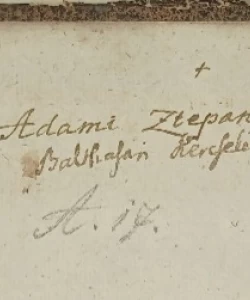 +
Adami Ztepan
Balthasari Kercsele
A. 17.